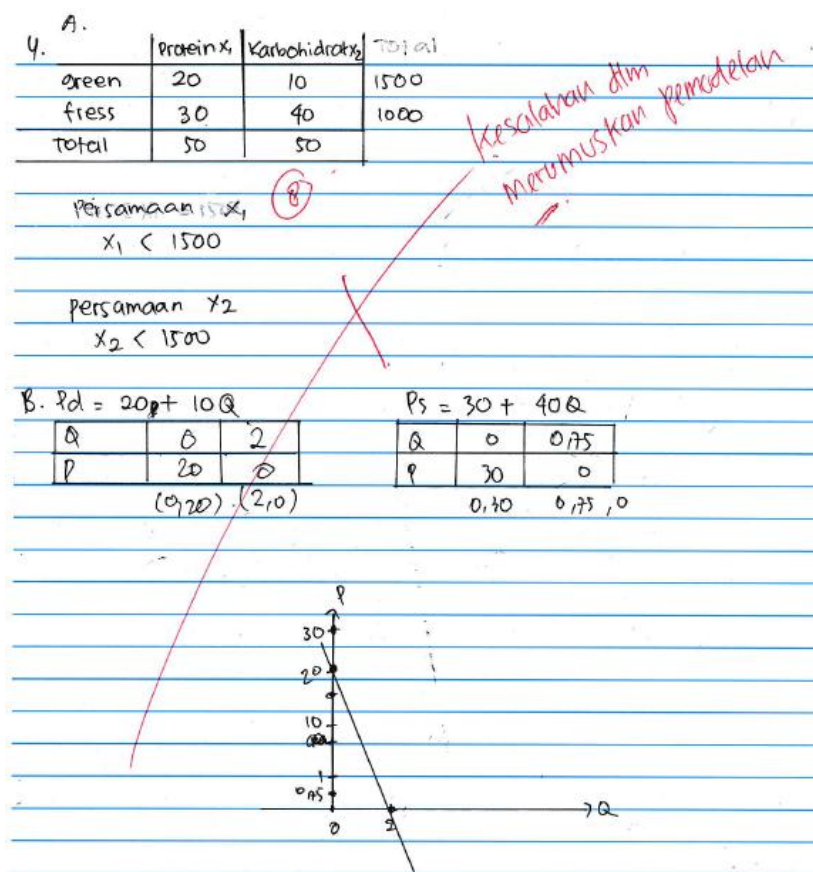 A.
4. Protein x₁ Karbohidrat x₂ Total
green 20 10 1500
fress 30 40 1000
Total 50 50
Kesalahan dlm
merumuskan pemodelan
8
Persamaan x₁
x₁ < 1500
persamaan x₂
x₂ < 1500
B. Pd = 20 + 10Q Ps = 30 + 40Q
Q 0 2 Q 0 0,75
P 20 0 P 30 0
(0,20) . (2,0) 0,30 0,75, 0
P
30
20
10
1
0,75
0 2 Q